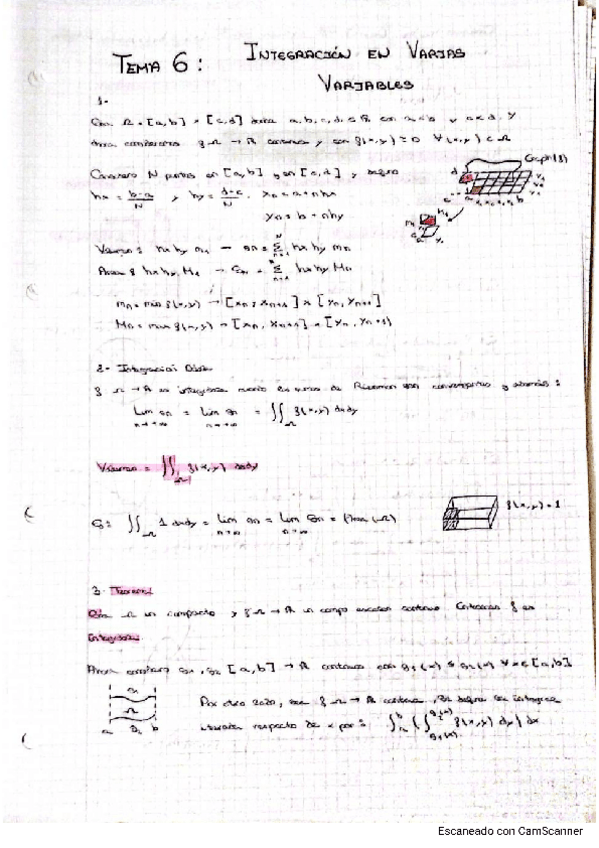 TEMA 6: INTEGRACIÓN EN VARIAS
VARIABLES
1-
Sea Ω = [a,b] × [c,d] a, b, c, d ∈ R con a<b y c<d. Y
f: Ω → R continua y con f(x,y) ≥ 0 ∀(x,y) ∈ Ω
Graph(f)
N puntos en [a,b] y en [c,d] y
hx = b-a/N , hy = d-c/N , xn = a+nhx
yn = b + nhy
hx hy m1 → sn = Σ hx hy mn
hx hy M1 → Sn = Σ hx hy Mn
mn = min f(x,y) → [xn, xn+1] × [yn, yn+1]
Mn = max f(x,y) → [xn, xn+1] × [yn, yn+1]
2- Integración Doble
f: Ω → R es integrable sumas de Riemann son convergentes y además:
Lim sn = Lim Sn = ∬Ω f(x,y) dxdy
n→∞ n→∞
Volumen = ∬Ω f(x,y) dxdy
∬Ω 1 dxdy = Lim sn = Lim Sn = Area (Ω)
n→∞ n→∞
f(x,y)=1
3- Teorema
Sea Ω un compacto y f: Ω → R un campo escalar continuo. Entonces f es
integrable.
Ahora g1, g2 [a,b] → R continuas con g1(x) ≤ g2(x) ∀x∈[a,b]
Por otro lado, sea f: Ω → R continua, se define su integral
iterada respecto de x por: ∫a b (∫g1(x) g2(x) f(x,y) dy) dx
a g2 b
Escaneado con CamScanner